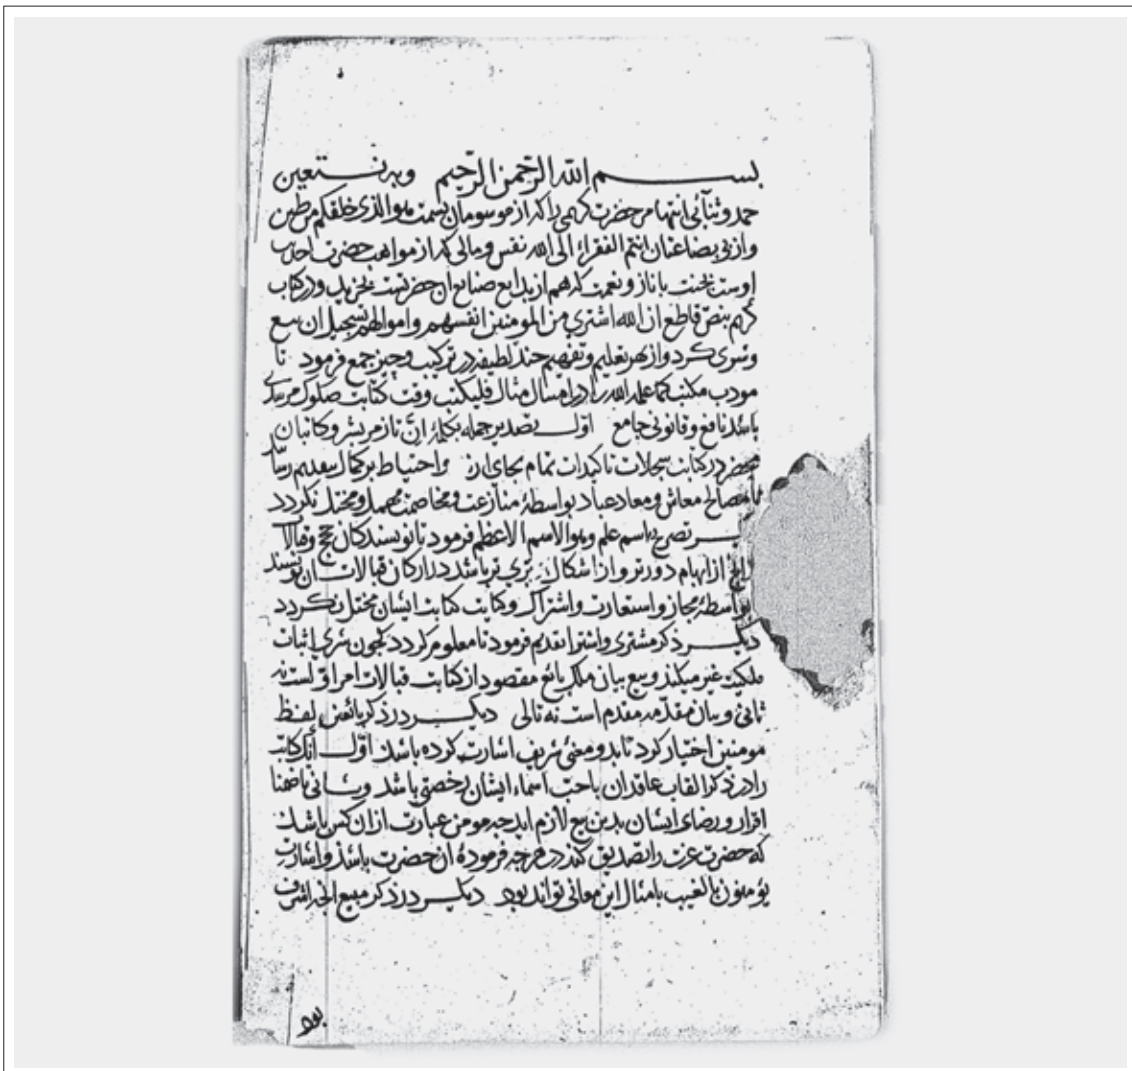 بسم الله الرحمن الرحیم وبه نستعین
حمد و ثنآئی انتها مر حضرت کریمی را که از موسومان بسمت هو الذی خلقکم من طین
و از بی بضاعتان انتم الفقراء الی الله نفس و مالی که از مواهب حضرت
اوست بجنت با ناز و نعمت که هم از بدایع صنایع ان حضرتست بخرید و در کتاب
کریم بنص قاطع ان الله اشتری من المومنین انفسهم و اموالهم تسجیل ان بیع
و شری کرد و از بهر تعلیم و تفهیم چند لطیفه در ترکیب وجیز جمع فرمود تا
مودب مکتب کما علمه الله را در امتثال مثال فلیکتب وقت کتابت صکوک
باشد نافع و قانونی جامع اول تصدیر جمله بکلمه ان تا زمره بشر و کاتبان
محضر در کتابت سجلات تاکیدات تمام بجای ارند و احتیاط بر کمال بتقدیم رسانند
تا مصالح معاش و معاد عباد بواسطه منازعت و مخاصمت مهمل و مختل نکردد
تصریح باسم علم و هو الاسم الاعظم فرمود تا نویسندکان حجج و قبالات
از ابهام دورتر و از اشکال بری تر باشد در ارکان قبالات ان نویسند
بواسطه مجاز و استعارت و اشتراک و کنایت کتابت ایشان مختل نکردد
دیکر ذکر مشتری و اشترا تقدیم فرمود تا معلوم کردد که چون شری اثبات
ملکیت غیر میکند و بیع بیان ملک بائع مقصود از کتابت قبالات امر اول است نه
ثانی و بیان مقدمه مقدم است نه تالی دیکر در ذکر بائعین لفظ
مومنین اختیار کرد تا بدو معنی شریف اشارت کرده باشد اول آنک کاتب
را در ذکر القاب عاقدان باحب اسماء ایشان رخصتی باشد و ثانی تا ضمنا
اقرار و رضای ایشان بدین بیع لازم اید چه مومن عبارت از ان کس باشد
که حضرت عزت را تصدیق کند در هرچه فرموده ان حضرت باشد و اشارت
یومنون بالغیب بامثال این معانی تواند بود دیکر در ذکر مبیع انچه اشرف
بود